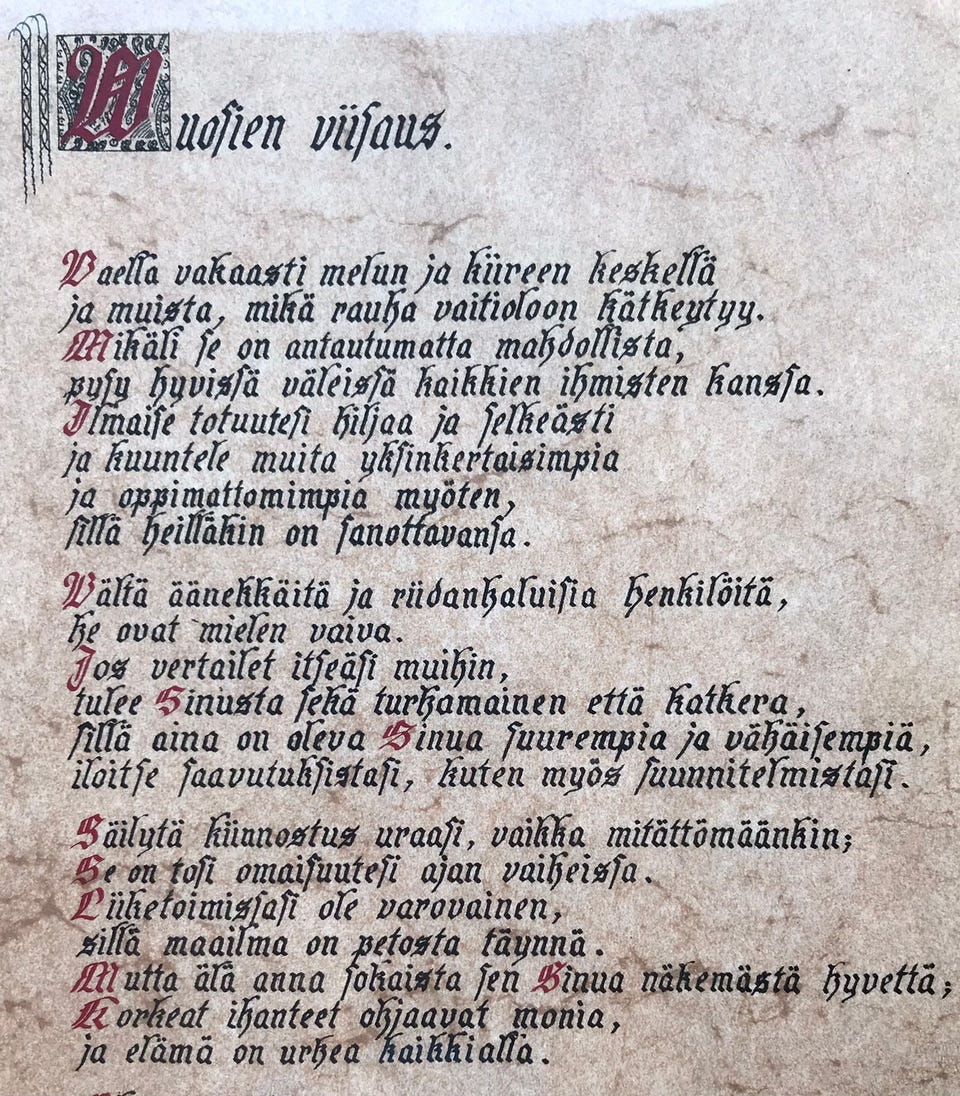 Wuosien viisaus.
Vaella vakaasti melun ja kiireen keskellä
ja muista, mikä rauha vaitioloon kätkeytyy.
Mikäli se on antautumatta mahdollista,
pysy hyvissä väleissä kaikkien ihmisten kanssa.
Ilmaise totuutesi hiljaa ja selkeästi
ja kuuntele muita yksinkertaisimpia
ja oppimattomimpia myöten,
sillä heilläkin on sanottavansa.
Vältä äänekkäitä ja riidanhaluisia henkilöitä,
he ovat mielen vaiva.
Jos vertailet itseäsi muihin,
tulee Sinusta sekä turhamainen että katkera,
sillä aina on oleva Sinua suurempia ja vähäisempiä,
iloitse saavutuksistasi, kuten myös suunnitelmistasi.
Säilytä kiinnostus uraasi, vaikka mitättömäänkin;
Se on tosi omaisuutesi ajan vaiheissa.
Liiketoimissasi ole varovainen,
sillä maailma on petosta täynnä.
Mutta älä anna sokaista sen Sinua näkemästä hyvettä;
Korkeat ihanteet ohjaavat monia,
ja elämä on urhea kaikkialla.